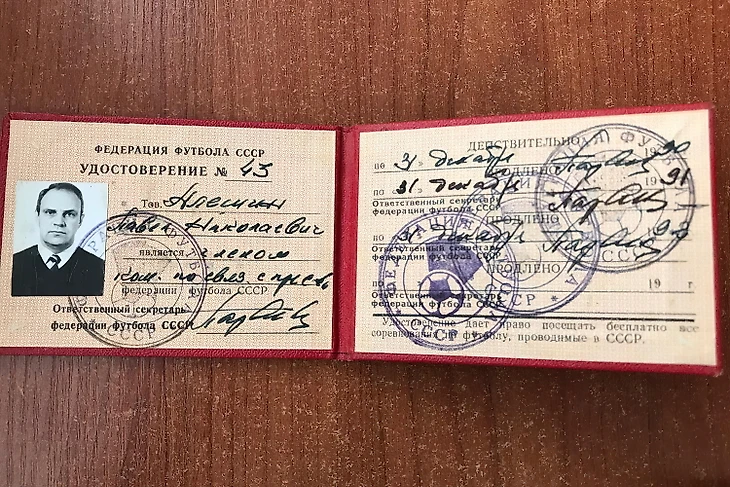 ФЕДЕРАЦИЯ ФУТБОЛА СССР
УДОСТОВЕРЕНИЕ № 43
Тов. Алешин
Павел Николаевич
является членом
ком. по связ с прессой
федерации футбола СССР
Ответственный секретарь
федерации футбола СССР
ДЕЙСТВИТЕЛЬНО
по 31 декабр 1990
ПРОДЛЕНО
31 декабр 1991
Ответственный секретарь
федерации футбола СССР
ПРОДЛЕНО
31 декабр
Ответственный секретарь
федерации футбола СССР
ПРОДЛЕНО
по 19 г
Ответственный секретарь
федерации футбола СССР
Удостоверение дает право посещать бесплатно все
соревнования по футболу, проводимые в СССР.